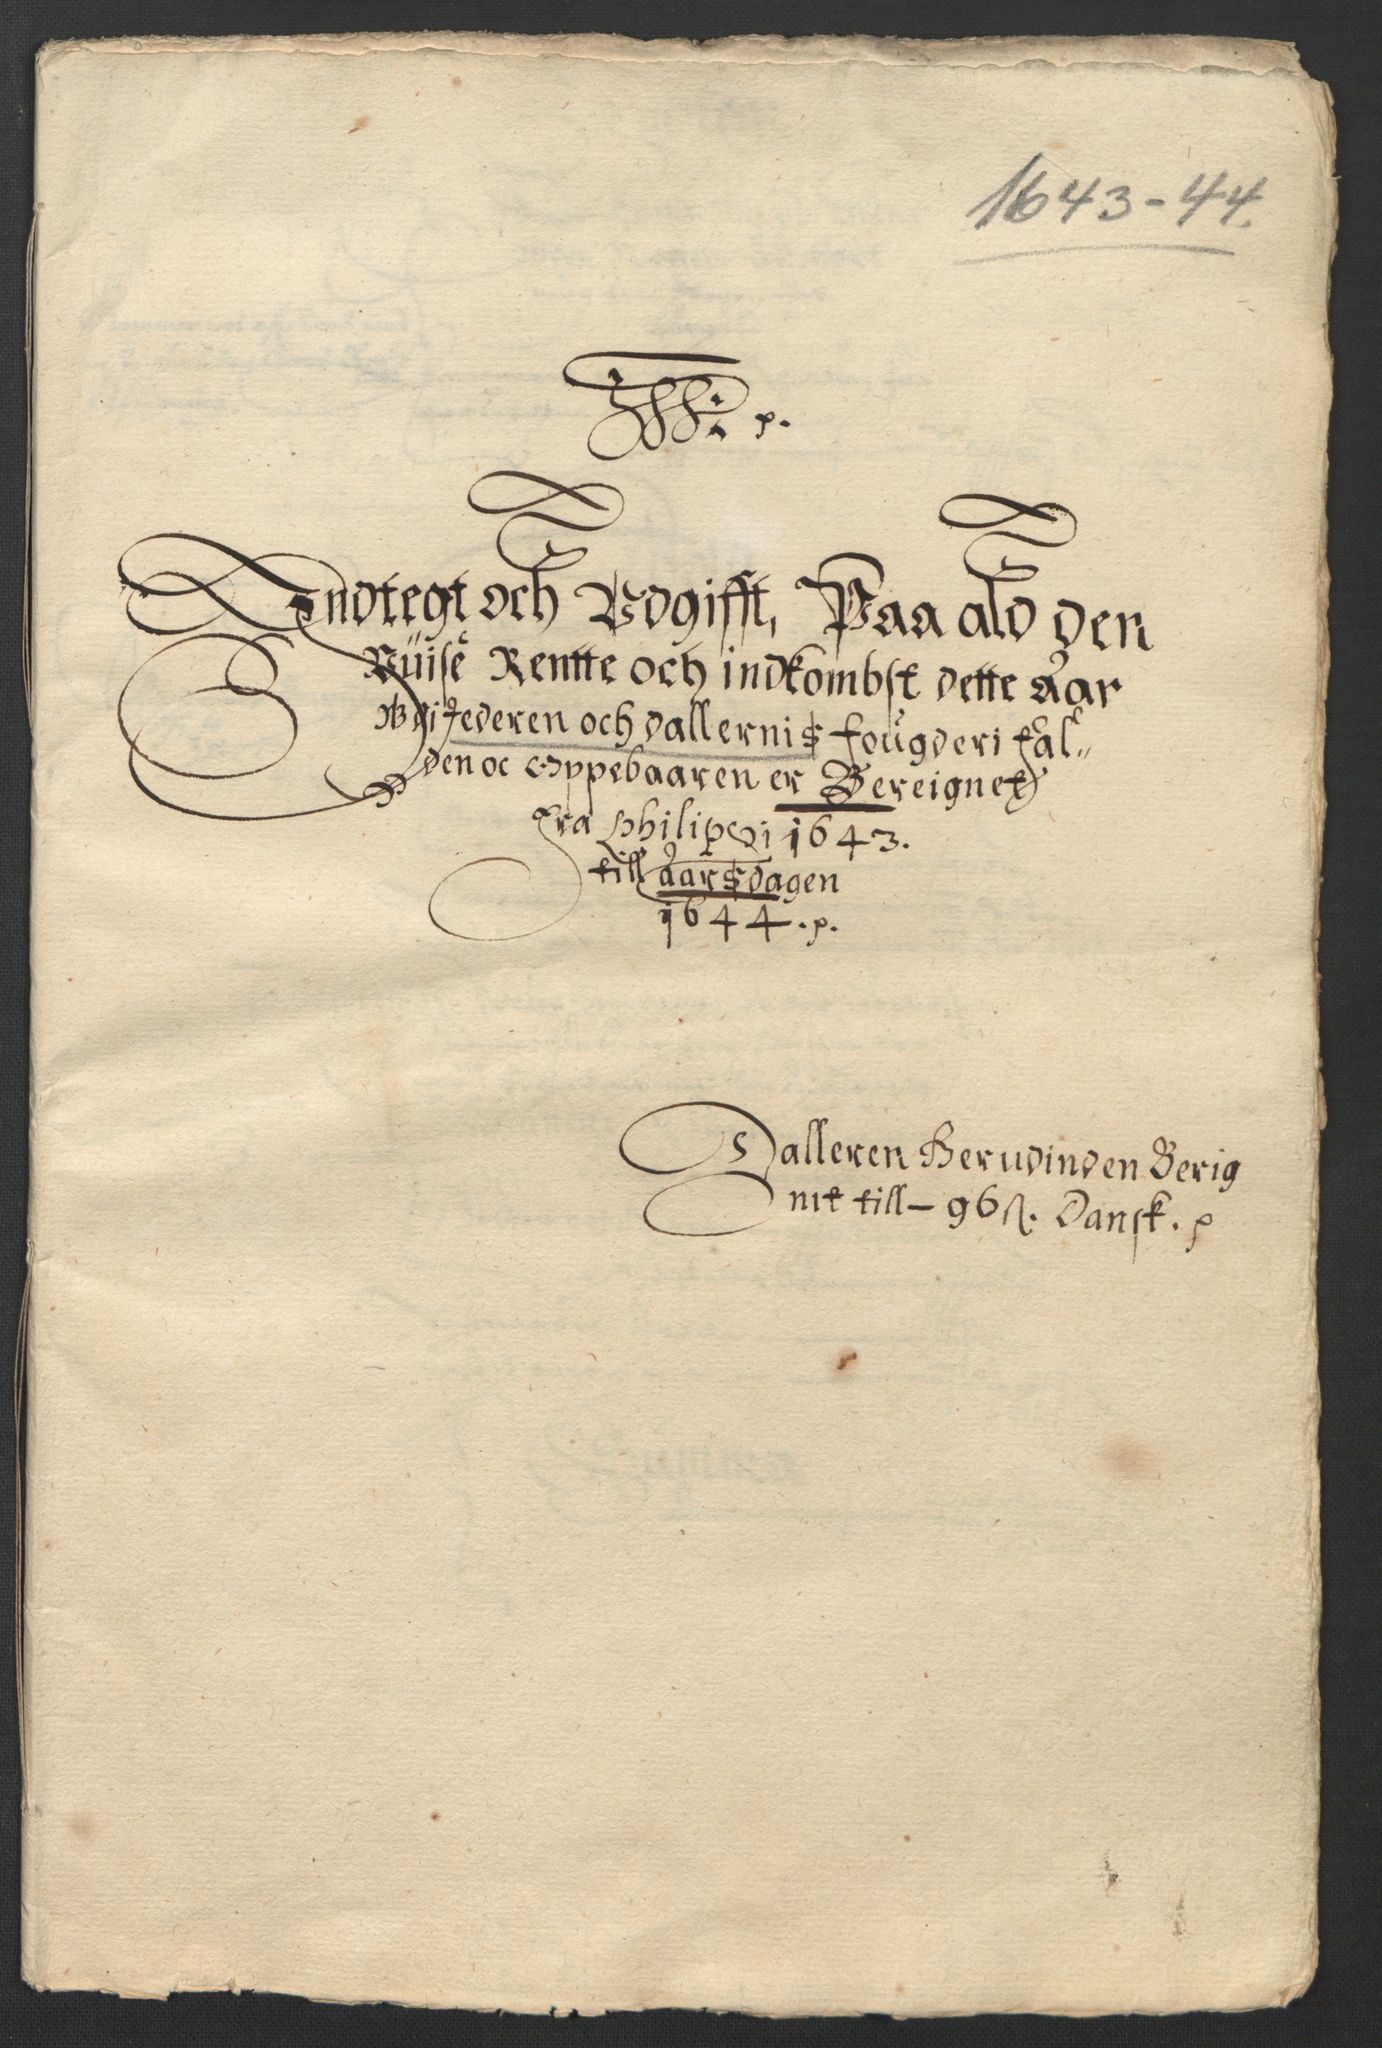 1643-44.
Indtegt och Vdgifft, Paa ald den
Vüise Rentte och indkombst dette Aar
Udi federen och dallernis fougderi fal„
den oc Oppebaaren er Bereignet
fra Philipi 1643.
till Aarsdagen
1644.p.
Dalleren Herudinden Berig
nit till - 96 ß. Dansk. p